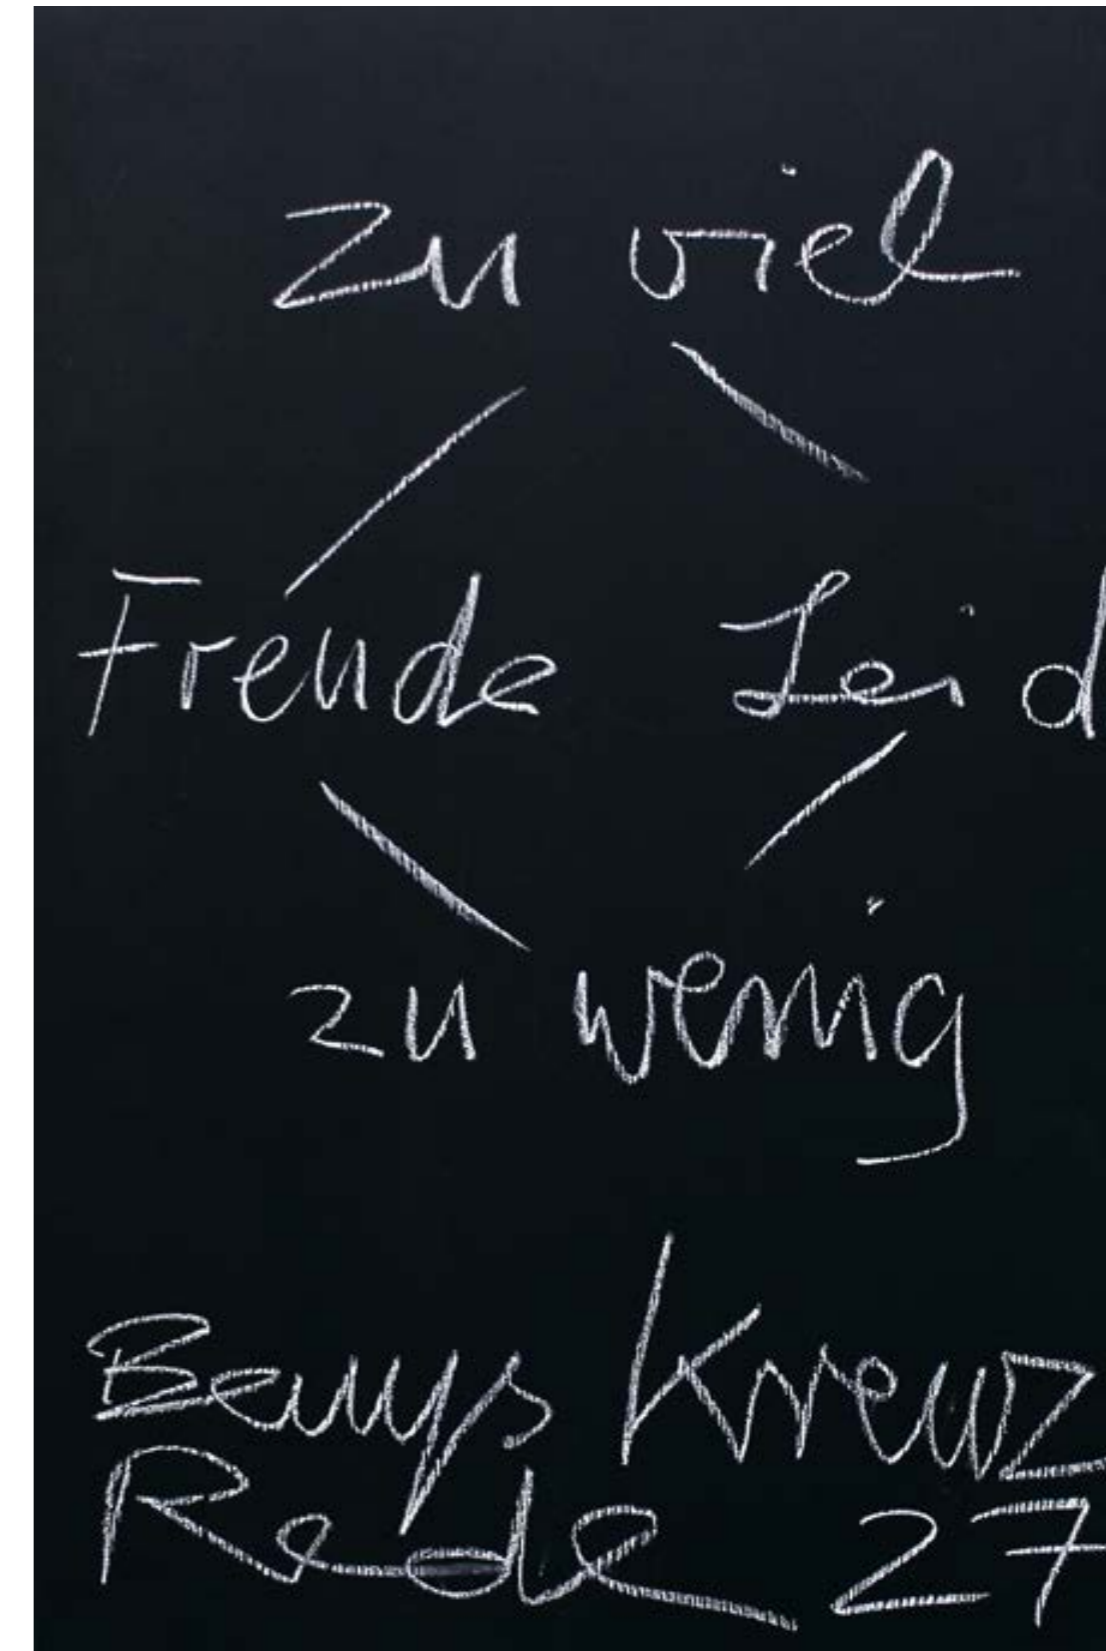 zu viel
Freude Leid
zu wenig
Beuys Kreuz
Rede 27